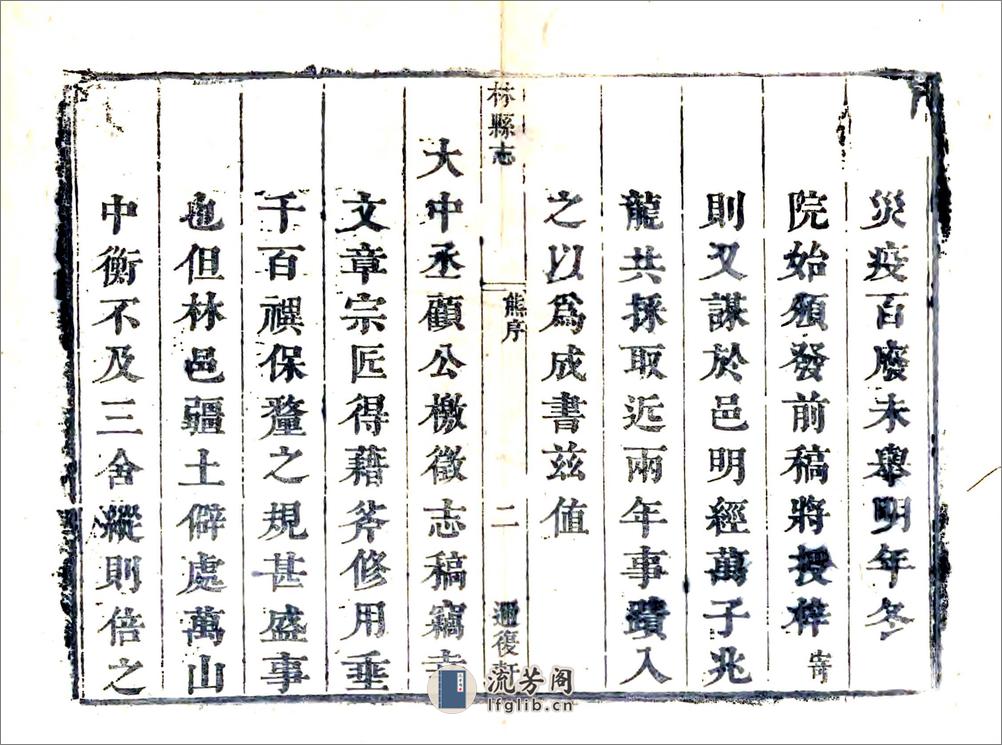 災疫百廢未舉明年冬
院始頒發前稿將授梓
則又謀於邑明經萬子兆
龍共採取近兩年事蹟入
之以爲成書兹值
林縣志
熊序
二
復軒
大中丞顧公檄徵志稿竊幸
文章宗匠得藉斧修用垂
千百禩保釐之規甚盛事
也但林邑疆土僻處萬山
中衡不及三舍縱則倍之
流芳阁
lfglib.cn